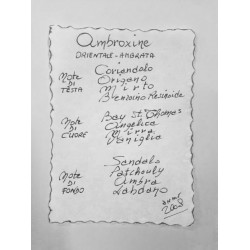 Ambroxine
ORIENTALE - AMBRATA
NOTE DI TESTA
Coriandolo
Origano
Mirto
Benzoino Resinoide
NOTE DI CUORE
Bay St. Thomas
Angelica
Mirra
Vaniglia
NOTE DI FONDO
Sandalo
Patchouly
Ambra
Labdano
2008